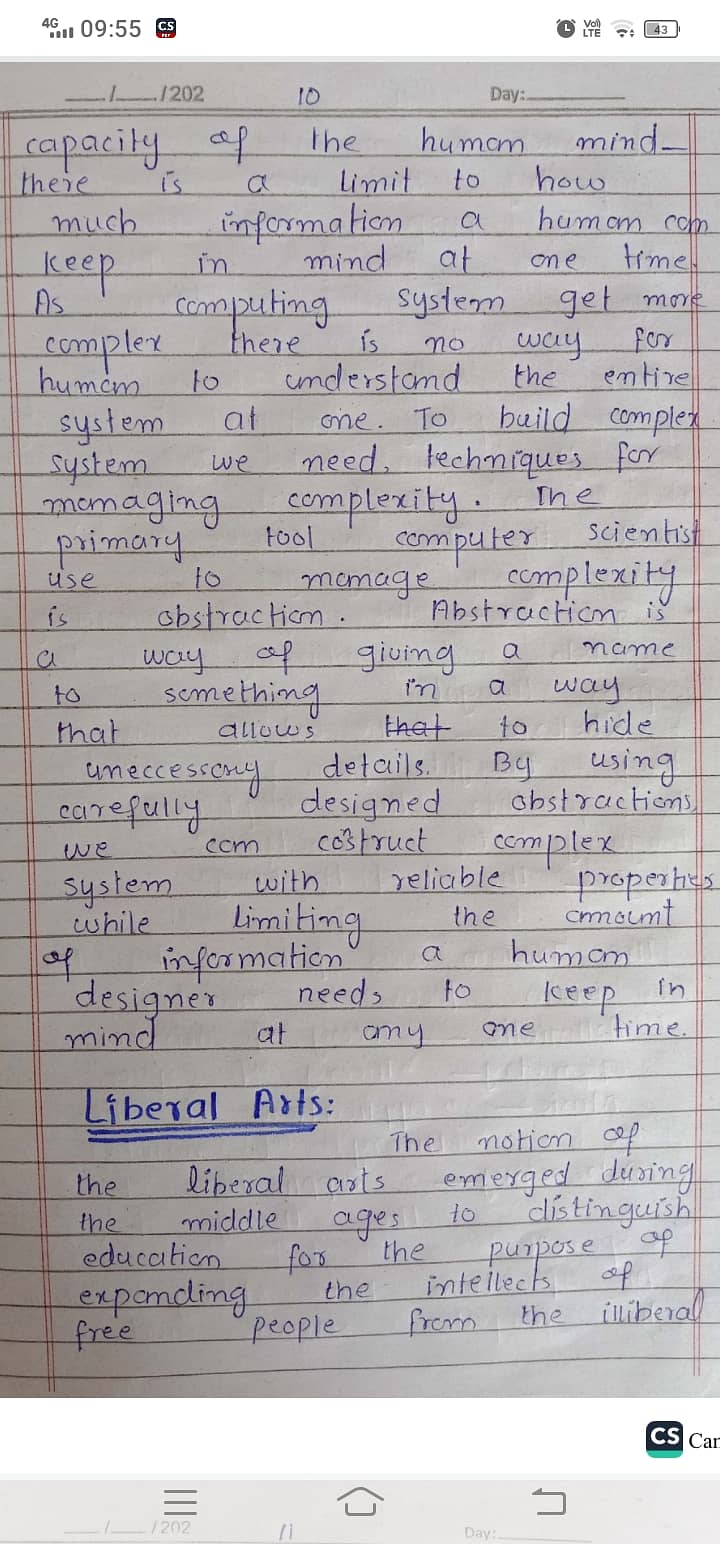 4G 09:55 CS PDF Vo)) LTE 43
__/__/202 10 Day:
capacity of the human mind-
there is a limit to how
much information a human can
keep in mind at one time.
As computing system get more
complex there is no way for
human to understand the entire
system at one. To build complex
system we need, techniques for
managing complexity. The
primary tool computer scientist
use to manage complexity
is abstraction. Abstraction is
a way of giving a name
to something in a way
that allows that to hide
uneccessary details. By using
carefully designed abstractions,
we can costruct complex
system with reliable properties
while limiting the amount
of information a human
designer needs to keep in
mind at any one time.
Liberal Arts:
The notion of
the liberal arts emerged during
the middle ages to distinguish
education for the purpose of
expanding the intellects of
free people from the illiberal
CS Car
__/__/202 11 Day: